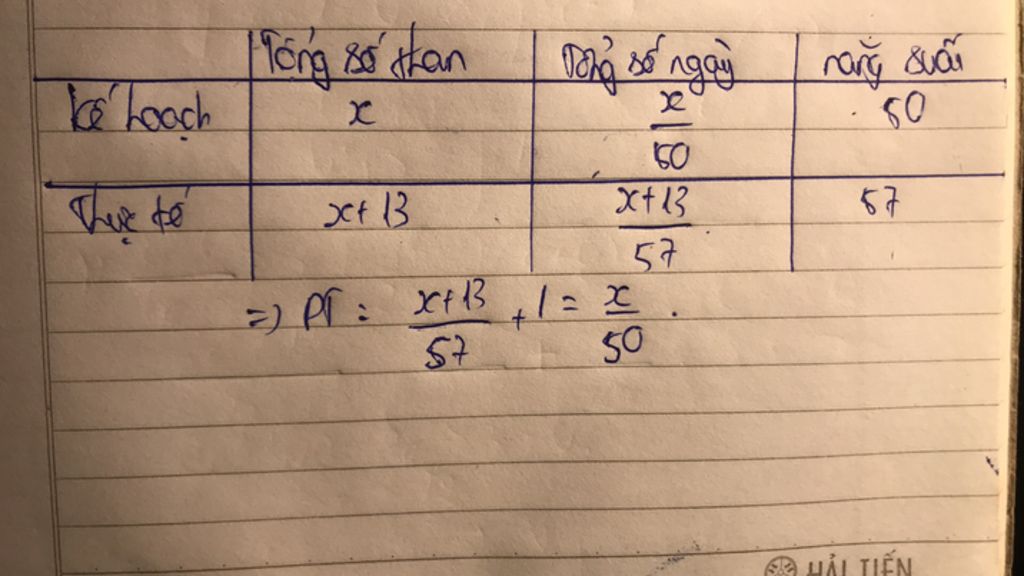 Tổng số than Tổng số ngày năng suất
Kế hoạch x x/50 50
Thực tế x+13 (x+13)/57 57
=> PT: (x+13)/57 + 1 = x/50.
HẢI TIẾN